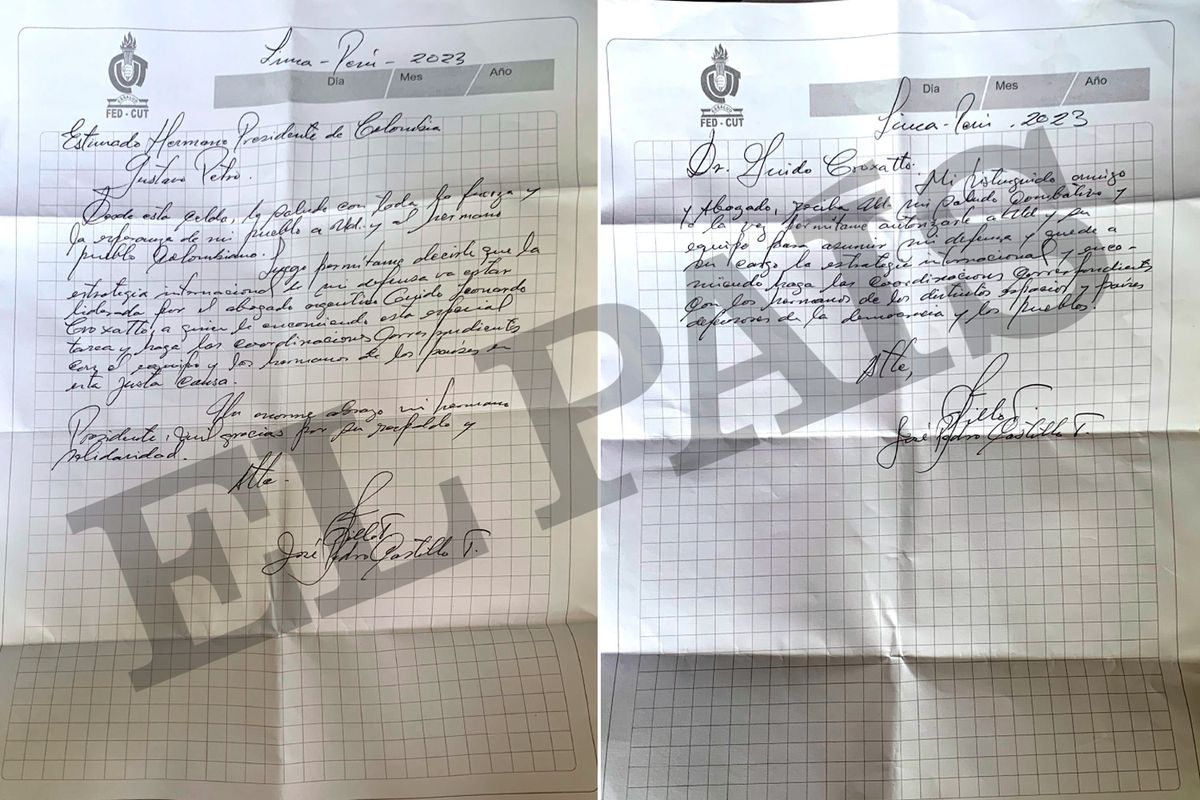 FED - CUT
Lima - Perú - 2023
Día Mes Año
Estimado Hermano Presidente de Colombia
Gustavo Petro.
Desde esta celda, le saludo con toda la fuerza y
la esperanza de mi pueblo a Ud. y al hermano
pueblo Colombiano.
Luego permítame decirle que la
estrategia internacional de mi defensa va estar
liderada por el abogado argentino Guido Leonardo
Croxatto, a quien le encomiendo esta especial
tarea y haga las coordinaciones correspondientes
con el equipo y los hermanos de los países en
esta justa causa.
Un enorme abrazo mi hermano
Presidente, mil gracias por su respaldo y
solidaridad.
Atte.
José Pedro Castillo T.
FED - CUT
Día Mes Año
Lima - Perú - 2023
Dr. Guido Croxatto. Mi distinguido amigo
y Abogado, reciba Ud. mi saludo combativo y
a la vez permítame autorizarle a Ud y su
equipo para asumir mi defensa y quede a
su cargo la estrategia internacional y enco-
miendo haga las coordinaciones correspondientes
con los hermanos de los distintos espacios y países
defensores de la democracia y los pueblos.
Atte,
José Pedro Castillo T.
EL PAÍS